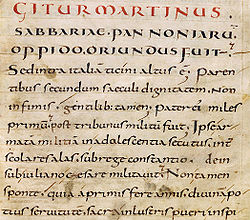 GITUR MARTINUS.
SABBARIAE · PANNONIARU
OPPIDO · ORIUNDUS FUIT ·
Sed intra italia ticini altus est; Paren
tibus secundum saeculi dignitatem. non
infimis · gentilib: tamen; Pater ei miles
primu post tribunus militu fuit; Ipse ar
mata militia in adolescentia secutus, inter
scolares alas, sub rege constantio · dein
sub iuliano caesare militavit; Non tamen
sponte, quia a primis fere annis, divina po
tius servitute, sacra inlustris pueri inspi